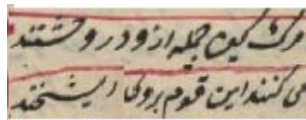 مرگ کین جمله ازو در وحشتند
می کنند این قوم بر وی ریشخند